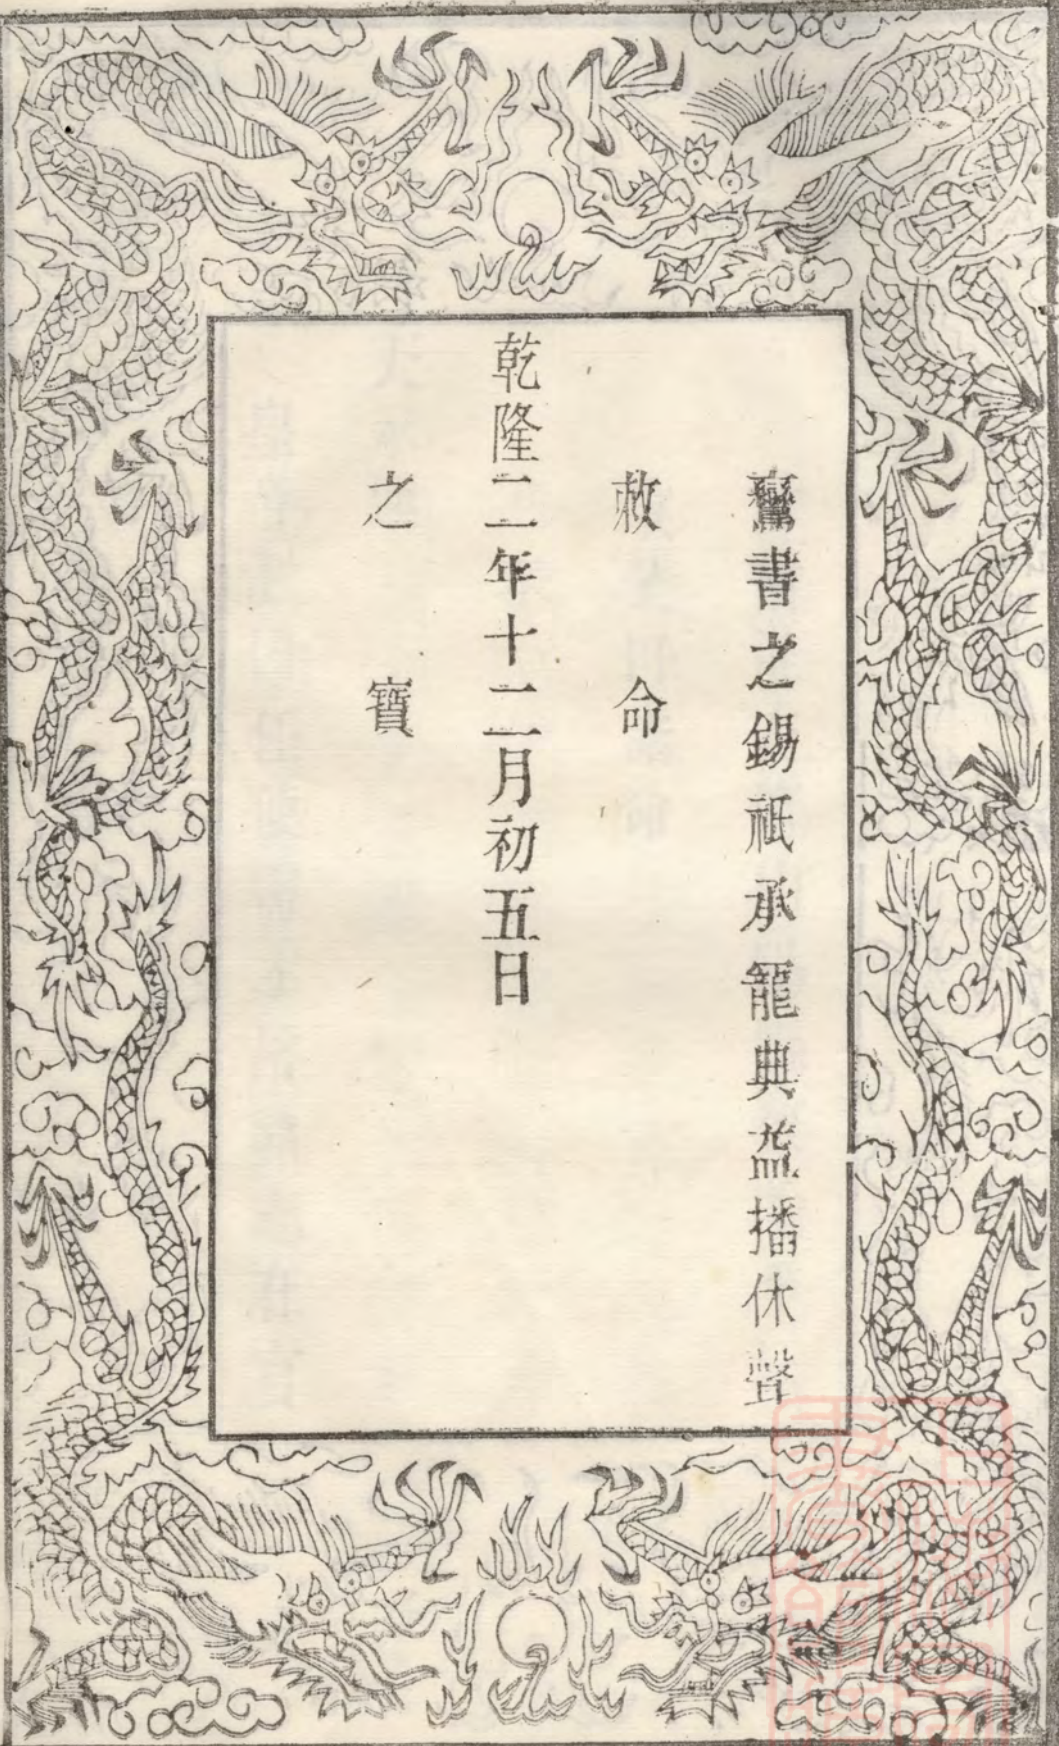 鸞書之錫祗承寵典益播休聲
敕命
乾隆二年十二月初五日
之寶